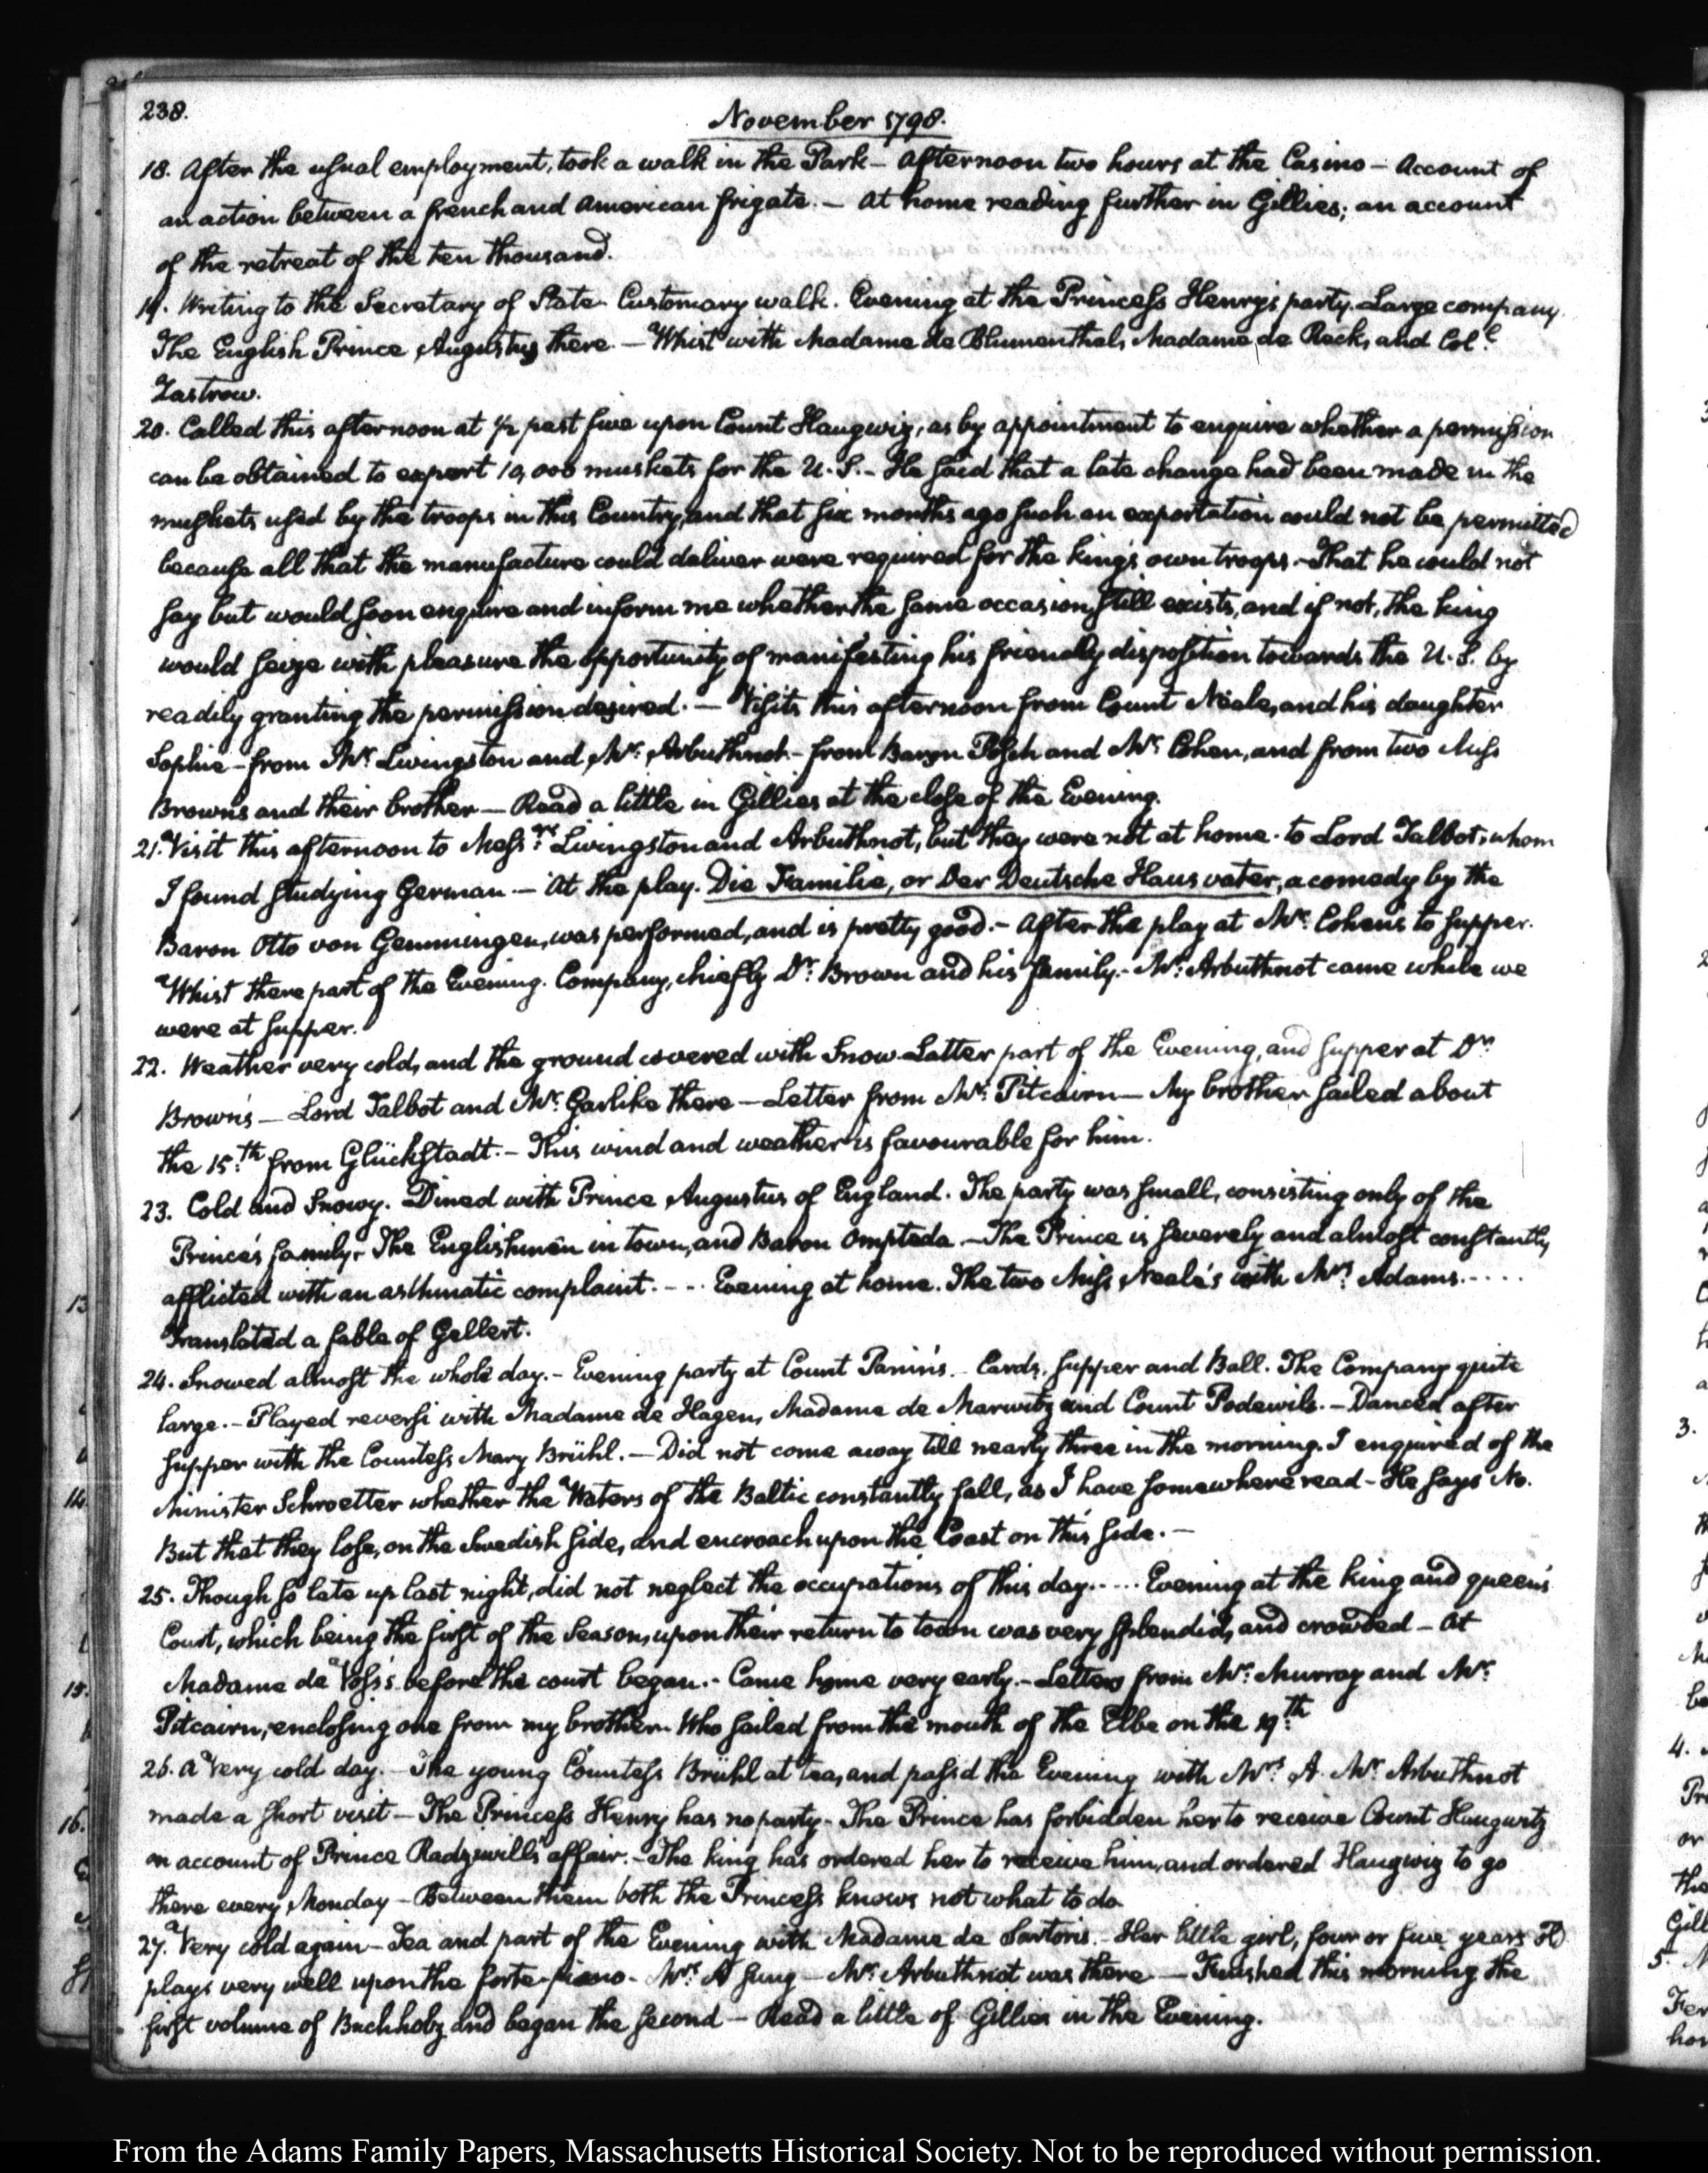 238.
November 1798.
18. After the usual employment, took a walk in the Park — Afternoon two hours at the Casino — Account of
an action between a french and American frigate. — At home reading further in Gillies; an account
of the retreat of the ten thousand.
19. Writing to the Secretary of State. Customary walk. Evening at the Princess Henry's party. Large company
The English Prince Augustus there. — Whist with Madame de Blumenthal, Madame de Reck, and Col.l
Zastrow.
20. Called this afternoon at ½ past five upon Count Haugwiz, as by appointment to enquire whether a permission
can be obtained to export 10,000 muskets for the U.S. — He said that a late change had been made in the
muskets used by the troops in this Country, and that six months ago such an exportation could not be permitted
because all that the manufacture could deliver were required for the king's own troops. — That he could not
say but would soon enquire and inform me whether the same occasion still exists, and if not, the king
would seize with pleasure the opportunity of manifesting his friendly disposition towards the U.S. by
readily granting the permission desired. — Visits this afternoon from Count Neale, and his daughter
Sophie — from Mr. Livingston and Mr. Arbuthnot — from Baron Posch and Mr. Cohen, and from two Miss
Browns and their brother — Read a little in Gillies at the close of the Evening.
21. Visit this afternoon to Mess.rs Livingston and Arbuthnot, but they were not at home. to Lord Talbot, whom
I found studying German — At the play. Die Familie, or Der Deutsche Hausvater, a comedy by the
Baron Otto von Gemmingen, was performed, and is pretty good. — After the play at Mr. Cohen's to supper.
Whist there part of the Evening. Company, chiefly Dr. Brown and his family. — Mr. Arbuthnot came while we
were at supper.
22. Weather very cold, and the ground covered with Snow. Latter part of the Evening, and supper at Dr.
Brown's — Lord Talbot and Mr. Garlike there — Letter from Mr. Pitcairn — My brother sailed about
the 15.th from Glückstadt. — This wind and weather is favourable for him.
23. Cold and Snowy. Dined with Prince Augustus of England. The party was small, consisting only of the
Prince's family, The Englishmen in town, and Baron Ompteda. — The Prince is severely and almost constantly
afflicted with an asthmatic complaint. - - .. Evening at home. The two Miss Neale's with Mrs. Adams.....
Translated a fable of Gellert.
24. Snowed almost the whole day. — Evening party at Count Panin's. Cards, supper and Ball. The Company quite
large. — Played reversi with Madame de Hagen, Madame de Marwitz and Count Podewils. — Danced after
supper with the Countess Mary Brühl. — Did not come away till nearly three in the morning. I enquired of the
Minister Schroetter whether the Waters of the Baltic constantly fall, as I have somewhere read — He says No.
But that they lose, on the Swedish side, and encroach upon the Coast on this side. —
25. Though so late up last night, did not neglect the occupations of this day..... Evening at the king and queen's
Court, which being the first of the Season, upon their return to town was very splendid, and crowded — At
Madame de Voss's before the court began. — Came home very early. — Letters from Mr. Murray and Mr.
Pitcairn, enclosing one from my brother. Who sailed from the mouth of the Elbe on the 19.th
26. A very cold day. — The young Countess Brühl at tea, and pass'd the Evening with Mrs. A. Mr. Arbuthnot
made a short visit — The Princess Henry has no party. The Prince has forbidden her to receive Count Haugwitz
on account of Prince Radzwill's affair. — The king has ordered her to receive him, and ordered Haugwiz to go
there every Monday — Between them both the Princess knows not what to do.
27. Very cold again — Tea and part of the Evening with Madame de Sartoris. — Her little girl, four or five years old
plays very well upon the forte-piano. Mrs. A sung — Mr. Arbuthnot was there — Finished this morning the
first volume of Buchholz and began the second — Read a little of Gillies in the Evening.
From the Adams Family Papers, Massachusetts Historical Society. Not to be reproduced without permission.